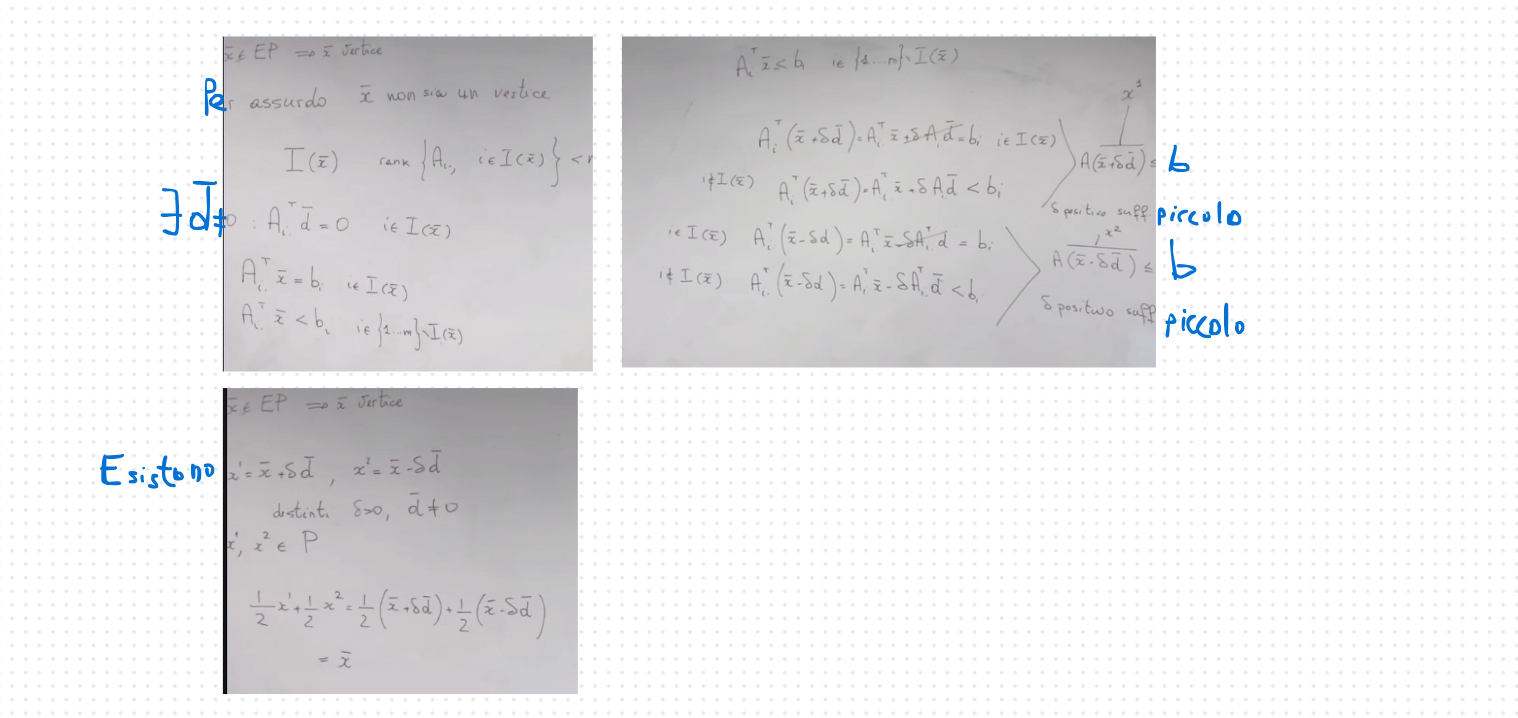 x̄ ∈ EP ⟹ x̄ vertice
Per assurdo x̄ non sia un vertice
I(x̄) rank {Aᵢ., i∈I(x̄)} <
∃ d̄ ≠ 0 : Aᵢ.ᵀ d̄ = 0 i∈ I(x̄)
Aᵢ.ᵀ x̄ = bᵢ i∈ I(x̄)
Aᵢ.ᵀ x̄ < bᵢ i∈ {1...m}\I(x̄)
Aᵢ.ᵀ x̄ ≤ bᵢ i∈ {1...m}\I(x̄)
x¹
Aᵢ.ᵀ (x̄+δd̄) = Aᵢ.ᵀ x̄ + δAᵢ.d̄ = bᵢ i∈ I(x̄)
A(x̄+δd̄) ≤ b
i∉I(x̄) Aᵢ.ᵀ (x̄+δd̄) = Aᵢ.ᵀ x̄ + δAᵢd̄ < bᵢ
δ positivo suff piccolo
i∈ I(x̄) Aᵢ.ᵀ (x̄-δd) = Aᵢ.ᵀ x̄ - δAᵢ.ᵀd = bᵢ
x²
A(x̄-δd̄) ≤ b
i∉ I(x̄) Aᵢ.ᵀ (x̄-δd) = Aᵢ.ᵀ x̄ - δAᵢ.ᵀ d̄ < bᵢ
δ positivo suff piccolo
x̄ ∈ EP ⟹ x̄ vertice
Esistono x¹ = x̄ + δd̄ , x² = x̄ - δd̄
distinti δ>0, d̄ ≠ 0
x¹, x² ∈ P
1/2 x¹ + 1/2 x² = 1/2 (x̄+δd̄) + 1/2 (x̄-δd̄)
= x̄